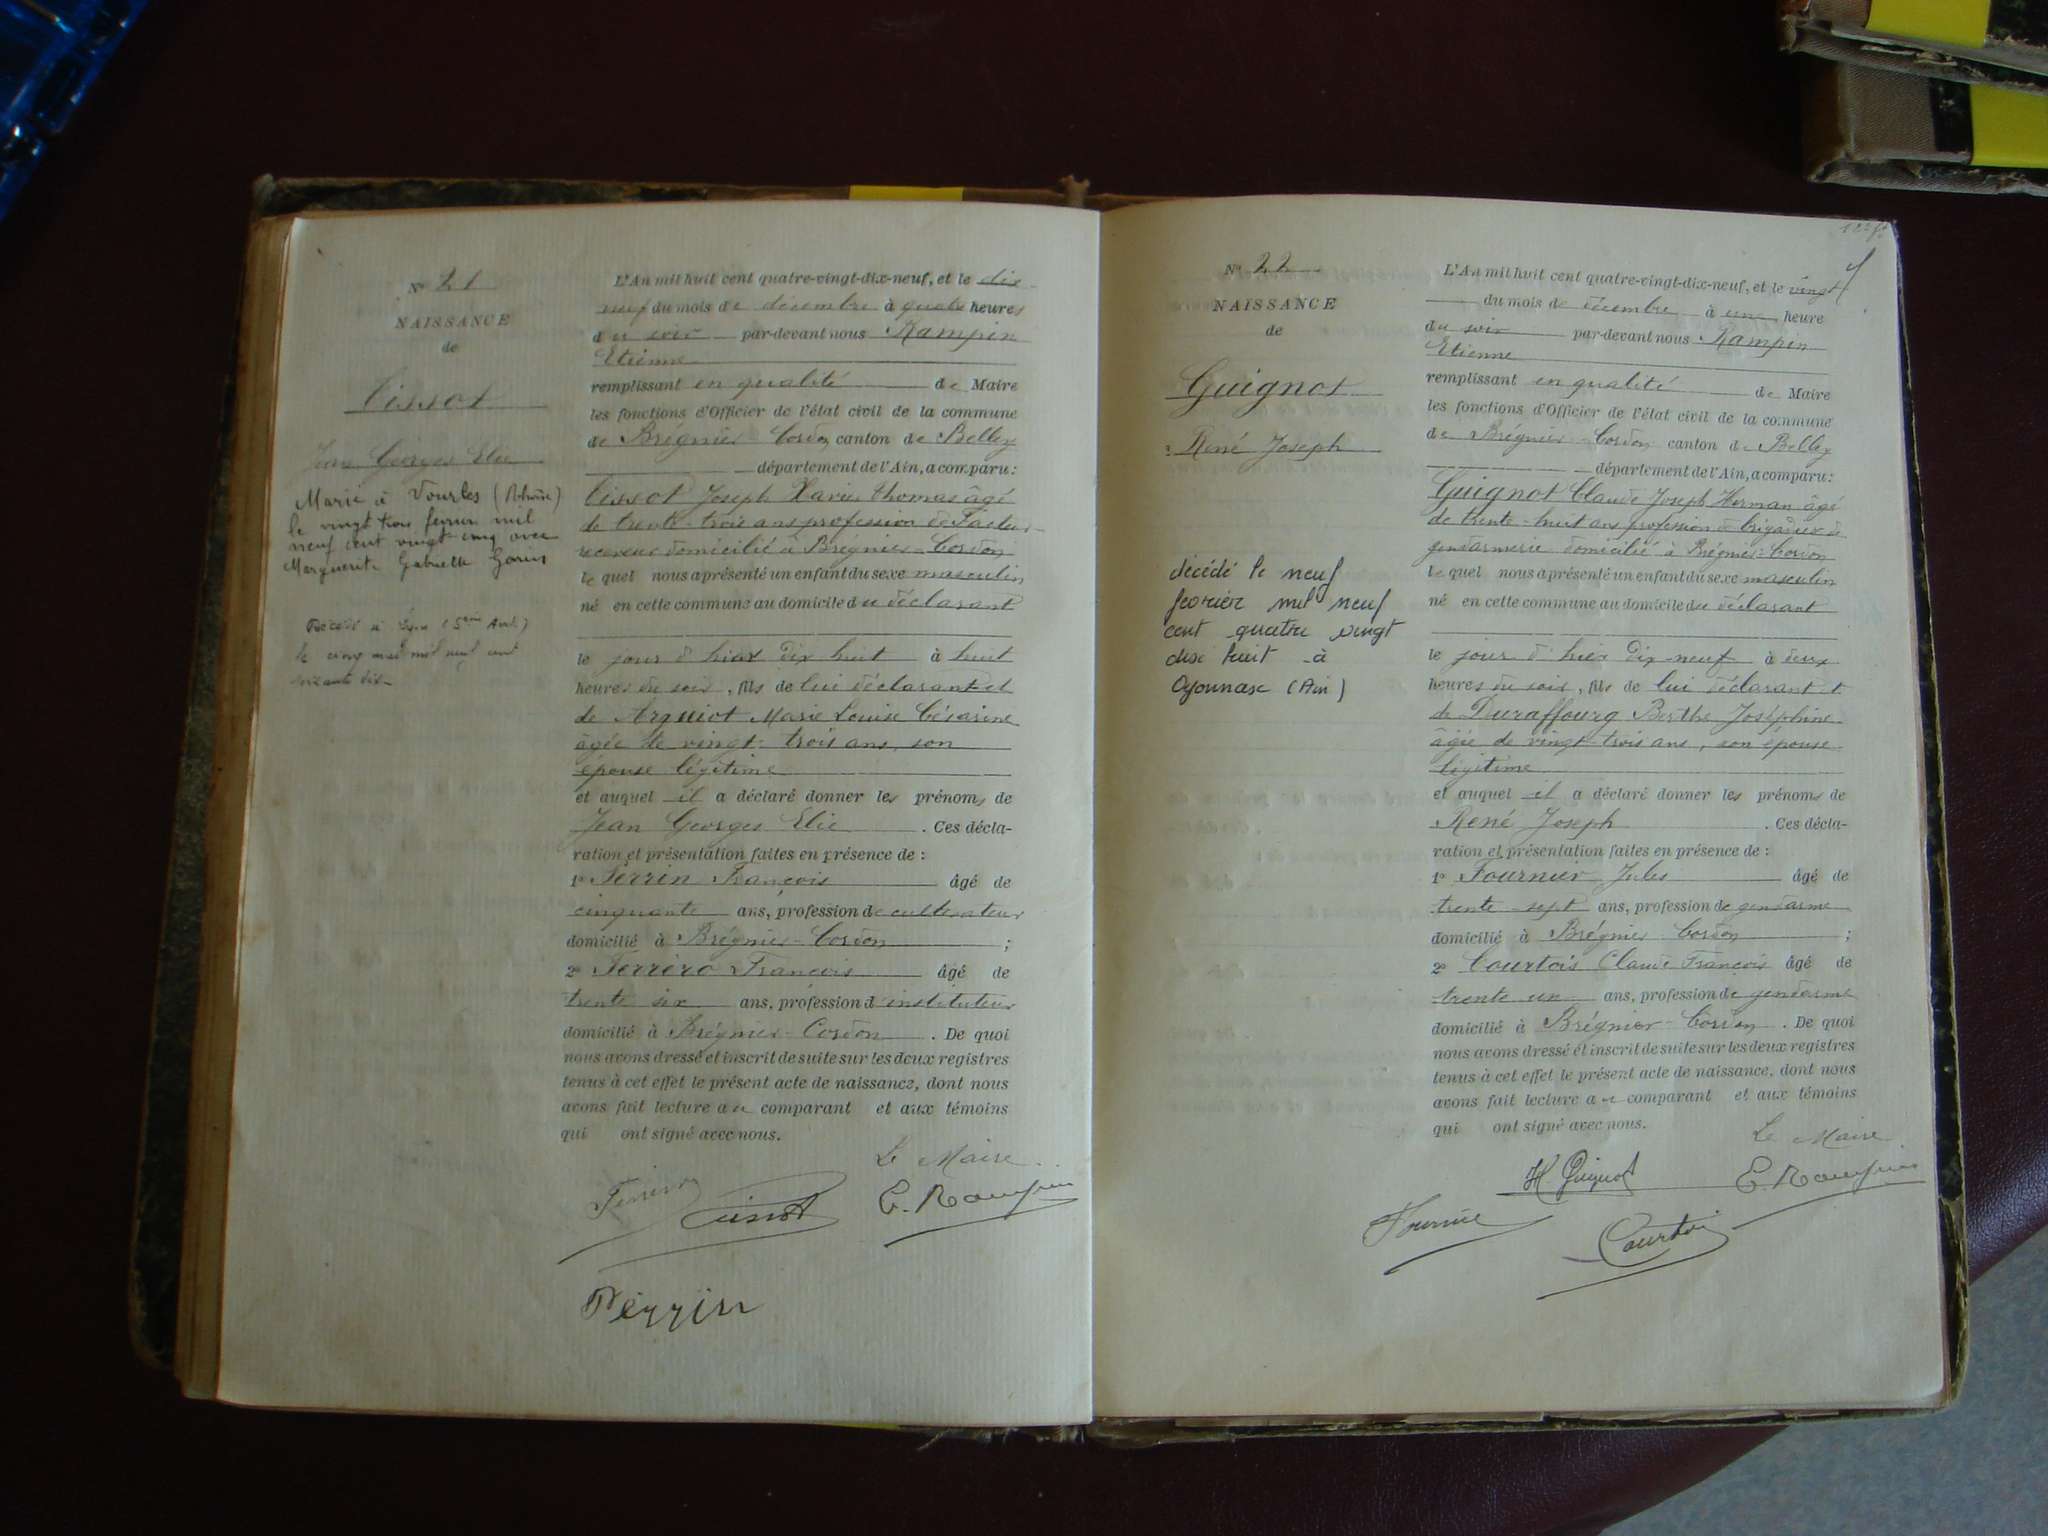 Nº 21
NAISSANCE
de
Cissot
Jean Georges Elie
Marié à Vourles (Rhône)
le vingt trois février mil
neuf cent vingt cinq avec
Marguerite Gabrielle
Décédé à Lyon (5ème Arrt)
le cinq mai mil neuf cent
soixante dix
L'An mil huit cent quatre-vingt-dix-neuf, et le dix
neuf du mois de décembre à quatre heures
du soir par-devant nous Rampin
Etienne
remplissant en qualité de Maire
les fonctions d'Officier de l'état civil de la commune
de Brégnier-Cordon, canton de Belley
département de l'Ain, a comparu :
Cissot Joseph Xavier Thomas âgé
de trente-trois ans profession de Facteur
receveur domicilié à Brégnier-Cordon
le quel nous a présenté un enfant du sexe masculin
né en cette commune au domicile du déclarant
le jour d'hier dix huit à huit
heures du soir, fils de lui déclarant et
de Arquiot Marie Louise Césarine
âgée de vingt-trois ans, son
épouse légitime
et auquel il a déclaré donner les prénoms de
Jean Georges Elie . Ces décla-
ration et présentation faites en présence de :
1º Perrin François âgé de
cinquante ans, profession de cultivateur
domicilié à Brégnier-Cordon ;
2º Ferrero François âgé de
trente six ans, profession d'instituteur
domicilié à Brégnier-Cordon . De quoi
nous avons dressé et inscrit de suite sur les deux registres
tenus à cet effet le présent acte de naissance, dont nous
avons fait lecture au comparant et aux témoins
qui ont signé avec nous.
Le Maire
Ferrero Cissot E. Rampin
Perrin
Nº 22
NAISSANCE
de
Guignot
René Joseph
décédé le neuf
février mil neuf
cent quatre vingt
dix huit à
Oyonnax (Ain)
L'An mil huit cent quatre-vingt-dix-neuf, et le vingt
du mois de décembre à une heure
du soir par-devant nous Rampin
Etienne
remplissant en qualité de Maire
les fonctions d'Officier de l'état civil de la commune
de Brégnier-Cordon canton de Belley
département de l'Ain, a comparu :
Guignot Claude Joseph Herman âgé
de trente-huit ans profession de brigadier de
gendarmerie domicilié à Brégnier-Cordon
le quel nous a présenté un enfant du sexe masculin
né en cette commune au domicile du déclarant
le jour d'hier dix-neuf à deux
heures du soir, fils de lui déclarant et
de Duraffourg Berthe Joséphine
âgée de vingt-trois ans, son épouse
légitime
et auquel il a déclaré donner les prénoms de
René Joseph . Ces décla-
ration et présentation faites en présence de :
1º Fournier Jules âgé de
trente-sept ans, profession de gendarme
domicilié à Brégnier-Cordon ;
2º Courtois Claude François âgé de
trente un ans, profession de gendarme
domicilié à Brégnier-Cordon . De quoi
nous avons dressé et inscrit de suite sur les deux registres
tenus à cet effet le présent acte de naissance, dont nous
avons fait lecture au comparant et aux témoins
qui ont signé avec nous.
Le Maire
H. Guignot E. Rampin
Fournier Courtois